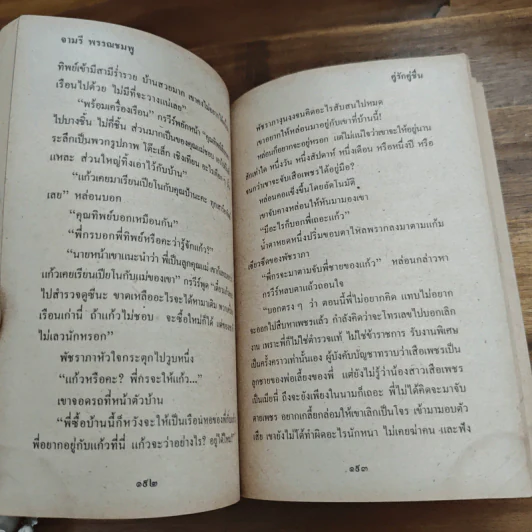 จามรี พรรณชมพู
ทิพย์เข้ามีสามีร่ำรวย บ้านสวยมาก เขาคง
เรือนไปด้วย ไม่มีที่จะวางแน่เลย”
“พร้อมเครื่องเรือน” กรวีร์พยักหน้า
ไปบางชิ้น ไม่กี่ชิ้น ส่วนมากเป็นของคุณแม่ชอบ
ระลึกเป็นพวกรูปภาพ โต๊ะเล็ก เชิงเทียน
แหละ ส่วนใหญ่ทิ้งเอาไว้กับบ้าน”
“แก้วเคยมาเรียนเปียโนกับคุณป้านะคะ
เลย” หล่อนบอก
“คุณทิพย์บอกเหมือนกัน”
“พี่กรบอกพี่ทิพย์หรือคะว่ารู้จักแก้ว?”
“นายหน้าเขาแนะนำว่า พี่เป็นลูกคุณแม่
แก้วเคยเรียนเปียโนกับแม่ของเขา” กรวีร์พูด
ไปสำรวจดูซีนะ ขาดเหลืออะไรจะได้หามาเติม
เรือนเก่านี่ ถ้าแก้วไม่ชอบ จะซื้อใหม่ก็ได้
ไม่เลวนักหรอก”
พัชราภาหัวใจกระตุกไปวูบหนึ่ง
“แก้วหรือคะ? พี่กรจะให้แก้ว...”
เขาจอดรถที่หน้าตัวบ้าน
“พี่ซื้อบ้านนี้ก็หวังจะให้เป็นเรือนหอของ
พี่อยากอยู่กับแก้วที่นี่ แก้วจะว่าอย่างไร?
๑๙๒
คู่รักคู่ชื่น
พัชราภางุนงงจนคิดอะไรสับสนไม่หมด
เขาอยากให้หล่อนมาอยู่กับเขาที่บ้านนี้!
หล่อนก็อยากจะอยู่หรอก แต่ไม่แน่ใจว่าเขาจะให้อยู่นาน
สักเท่าใด หนึ่งวัน หนึ่งสัปดาห์ หนึ่งเดือน หรือหนึ่งปี หรือ
จนกว่าเขาจะจับเสือเพชรได้อยู่มือ?
หล่อนคอแข็งขึ้นโดยอัตโนมัติ
เขาจับคางหล่อนให้หันมามองเขา
“มีอะไรก็บอกพี่เถอะแก้ว”
น้ำตาหยดหนึ่งปริ่มขอบตาไหลพรากลงมาตามแก้ม
เขียวซีดของพัชราภา
“พี่กรจะมาตามจับพี่ชายของแก้ว” หล่อนกล่าวหา
กรวีร์หลบตาแล้วถอนใจ
“บอกตรง ๆ ว่า ตอนนี้พี่ไม่อยากคิด แทบไม่อยาก
จะออกไปสืบหาเพชรแล้ว กำลังคิดว่าจะโทรเลขไปบอกเลิก
งาน เพราะพี่ก็ไม่ใช่ตำรวจแท้ ไม่ใช่ข้าราชการ รับงานพิเศษ
เป็นครั้งคราวเท่านั้นเอง ผู้บังคับบัญชาทราบว่าเสือเพชรเป็น
ลูกชายของพ่อเลี้ยงของพี่ แต่ยังไม่รู้ว่าน้องสาวเสือเพชร
เป็นเมียนี่ ถึงจะยังเพียงในนามก็เถอะ พี่ไม่ได้คิดจะมาจับ
ตายเพชร อยากเกลี้ยกล่อมให้เขาเลิกเป็นโจร เข้ามามอบตัว
เสีย เขายังไม่ได้ทำผิดอะไรนักหนา ไม่เคยฆ่าคน และฟัง
๑๙๓